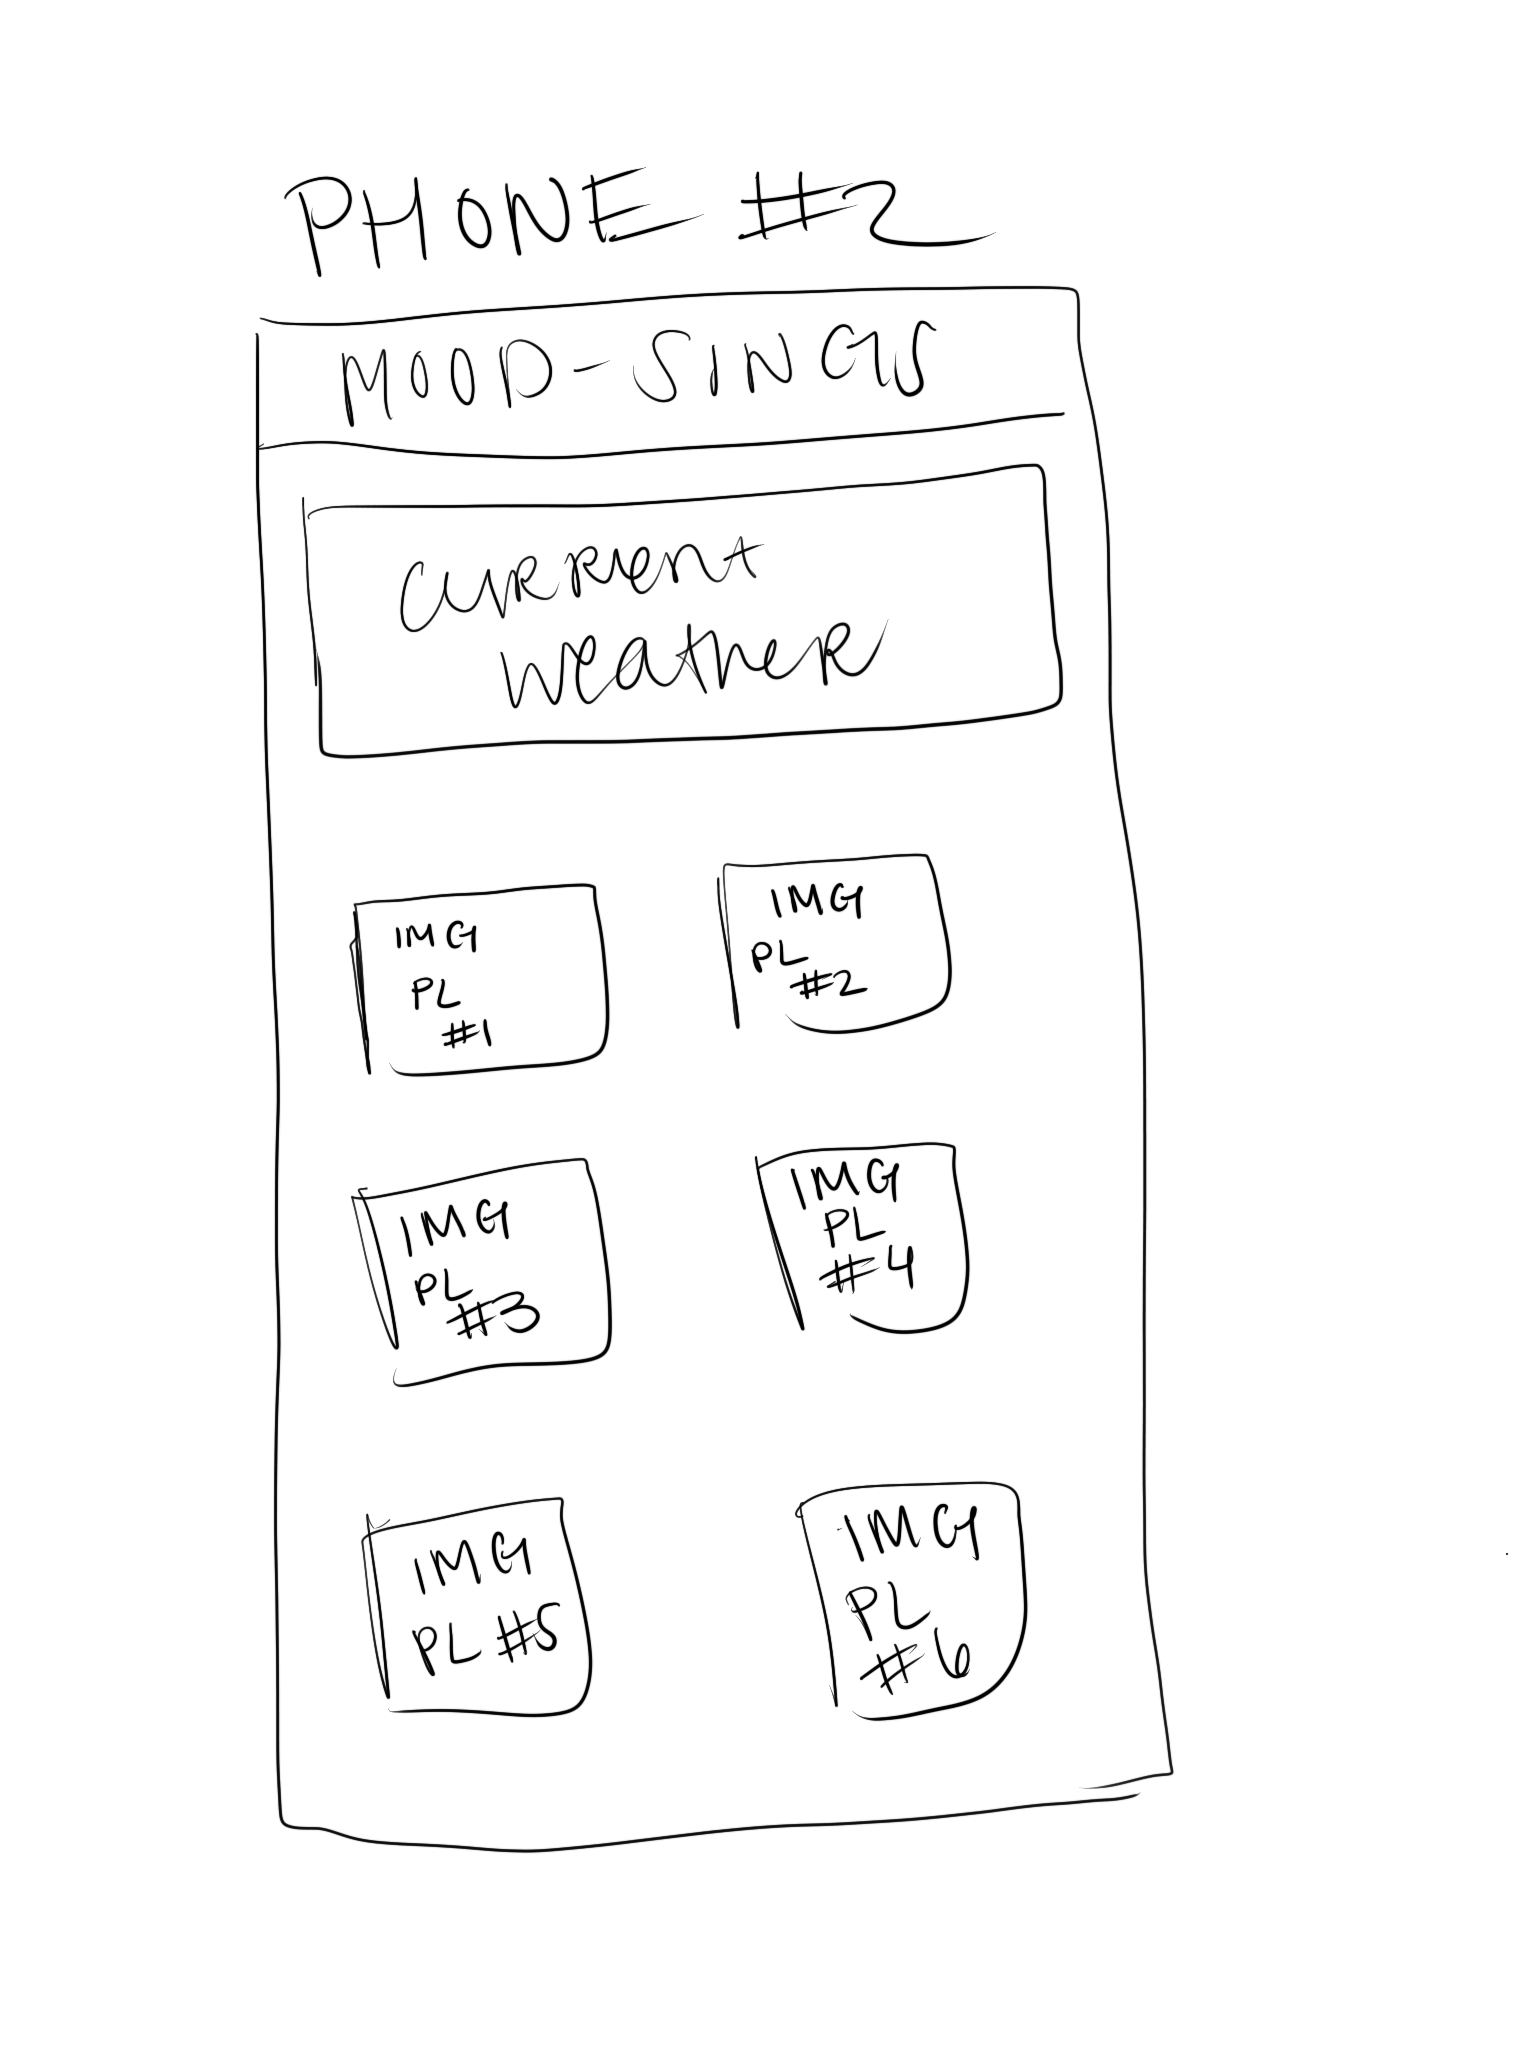 PHONE #2
MOOD-SINGS
CURRENT
WEATHER
IMG
PL
#1
IMG
PL
#2
IMG
PL
#3
IMG
PL
#4
IMG
PL #5
IMG
PL
#6